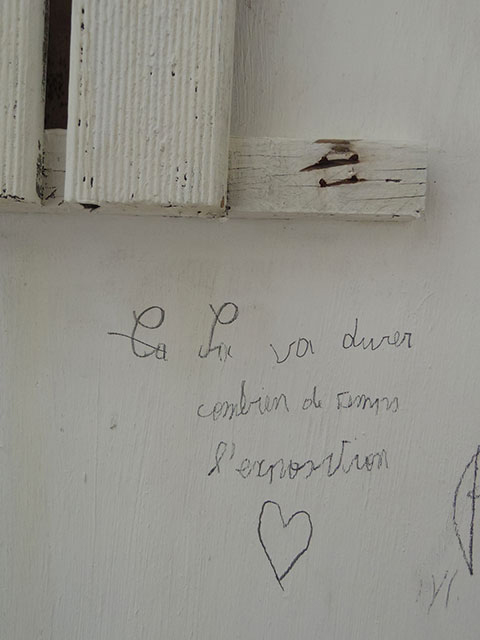 Ça Six va durer
combien de temps
l'exposition